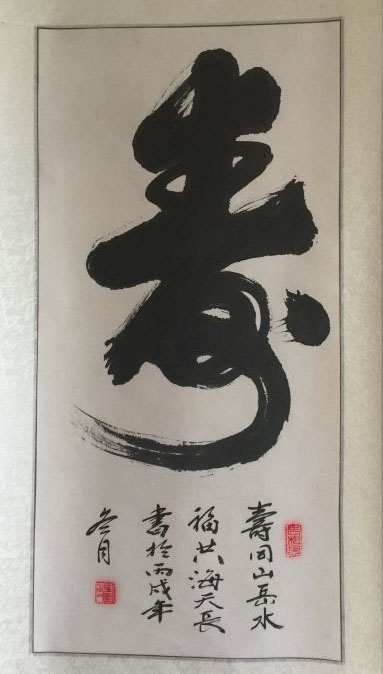 寿
壽同山岳永
福共海天長
書於丙戌年
冬月